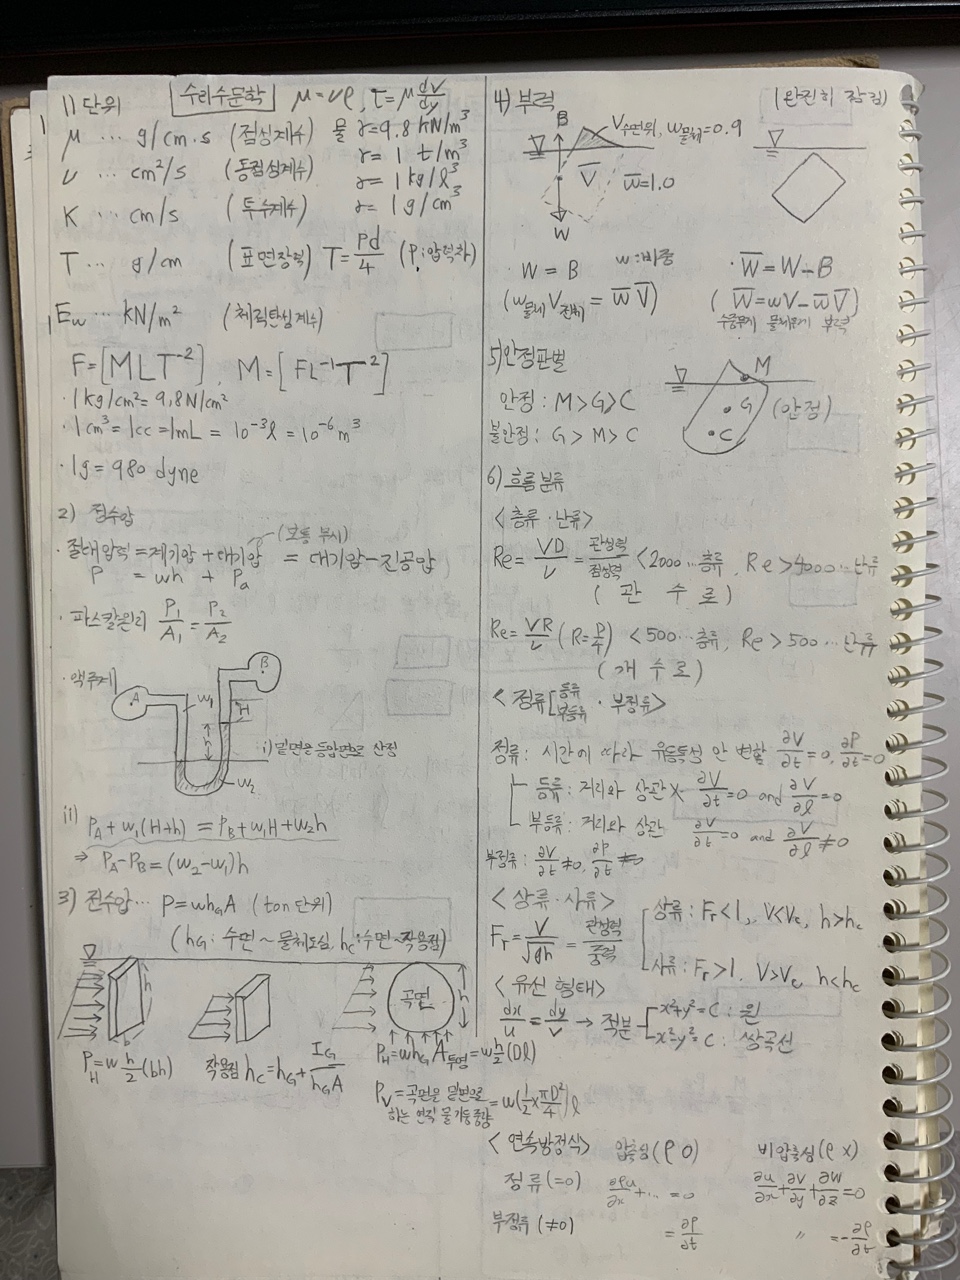 수리수문학 μ=νρ, τ=μ dv/dy
1) 단위
μ ... g/cm·s (점성계수) 물 γ=9.8 kN/m³
ν ... cm²/s (동점성계수) γ= 1 t/m³
γ= 1 kg/ℓ³
K ... cm/s (투수계수) γ= 1 g/cm³
T ... g/cm (표면장력) T= Pd/4 (P:압력차)
Ew ... kN/m² (체적탄성계수)
F=[MLT⁻²], M=[FL⁻¹T⁻²]
· 1kg/cm²=9.8N/cm²
· 1cm³=1cc=1mL = 10⁻³ℓ = 10⁻⁶m³
· 1g=980 dyne
2) 정수압
(보통 무시)
· 절대압력=계기압+대기압 = 대기압-진공압
P = wh + Pa
· 파스칼원리 P₁/A₁=P₂/A₂
· 액주계
A B w₁ H h w₂
i) 밑면을 등압면으로 산정
ii) PA+w₁(H+h)=PB+w₁H+w₂h
⇒ PA-PB=(w₂-w₁)h
3) 전수압... P=whGA (ton 단위)
(hG: 수면~물체도심, hc:수면~작용점)
h b 곡면 h
PH=w h/2 (bh) 작용점 hc=hG+ IG/hGA PH=whGA투영=w h/2 (Dℓ)
PV=곡면을 밑면으로 하는 연직 물기둥중량=w(1/2×πD²/4)ℓ
4) 부력 (완전히 잠김)
B V수면위, w물체=0.9
V̅ w̅=1.0
W
· W=B w:비중 · W̅=W-B
(w물체V전체 = w̅V̅) (W̅=wV-w̅V̅)
수중무게 물체무게 부력
5) 안정판별
안정: M>G>C M G C (안정)
불안정: G>M>C
6) 흐름분류
<층류·난류>
Re= VD/ν = 관성력/점성력 <2000...층류, Re>4000...난류
(관수로)
Re= VR/ν (R=D/4) <500...층류, Re>500...난류
(개수로)
<정류[등류 부등류 · 부정류>
정류: 시간에 따라 유동특성 안 변함 ∂V/∂t=0, ∂ρ/∂t=0
등류: 거리와 상관X ∂V/∂t=0 and ∂V/∂ℓ=0
부등류: 거리와 상관 ∂V/∂t=0 and ∂V/∂ℓ≠0
부정류: ∂V/∂t≠0, ∂ρ/∂t≠0
<상류·사류>
상류: Fr<1, V<Vc, h>hc
Fr= V/√gh = 관성력/중력
사류: Fr>1. V>Vc h<hc
<유선 형태>
dx/u = dy/v → 적분 x²+y²=C: 원
x²-y²=C: 쌍곡선
<연속방정식> 압축성(ρ O) 비압축성(ρ X)
정류(=0) ∂ρu/∂x+... =0 ∂u/∂x+∂v/∂y+∂w/∂z=0
부정류(≠0) =∂ρ/∂t 〃 =-∂ρ/∂t